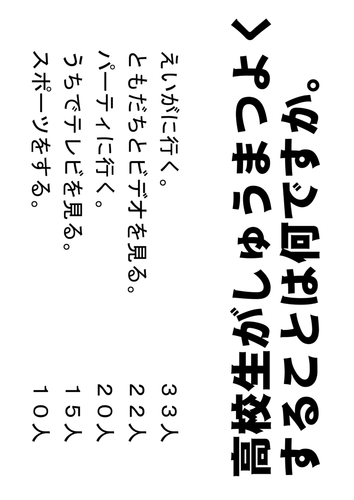 高校生がしゅうまつよく
することは何ですか。
えいがに行く。 ３３人
ともだちとビデオを見る。 ２２人
パーティに行く。 ２０人
うちでテレビを見る。 １５人
スポーツをする。 １０人